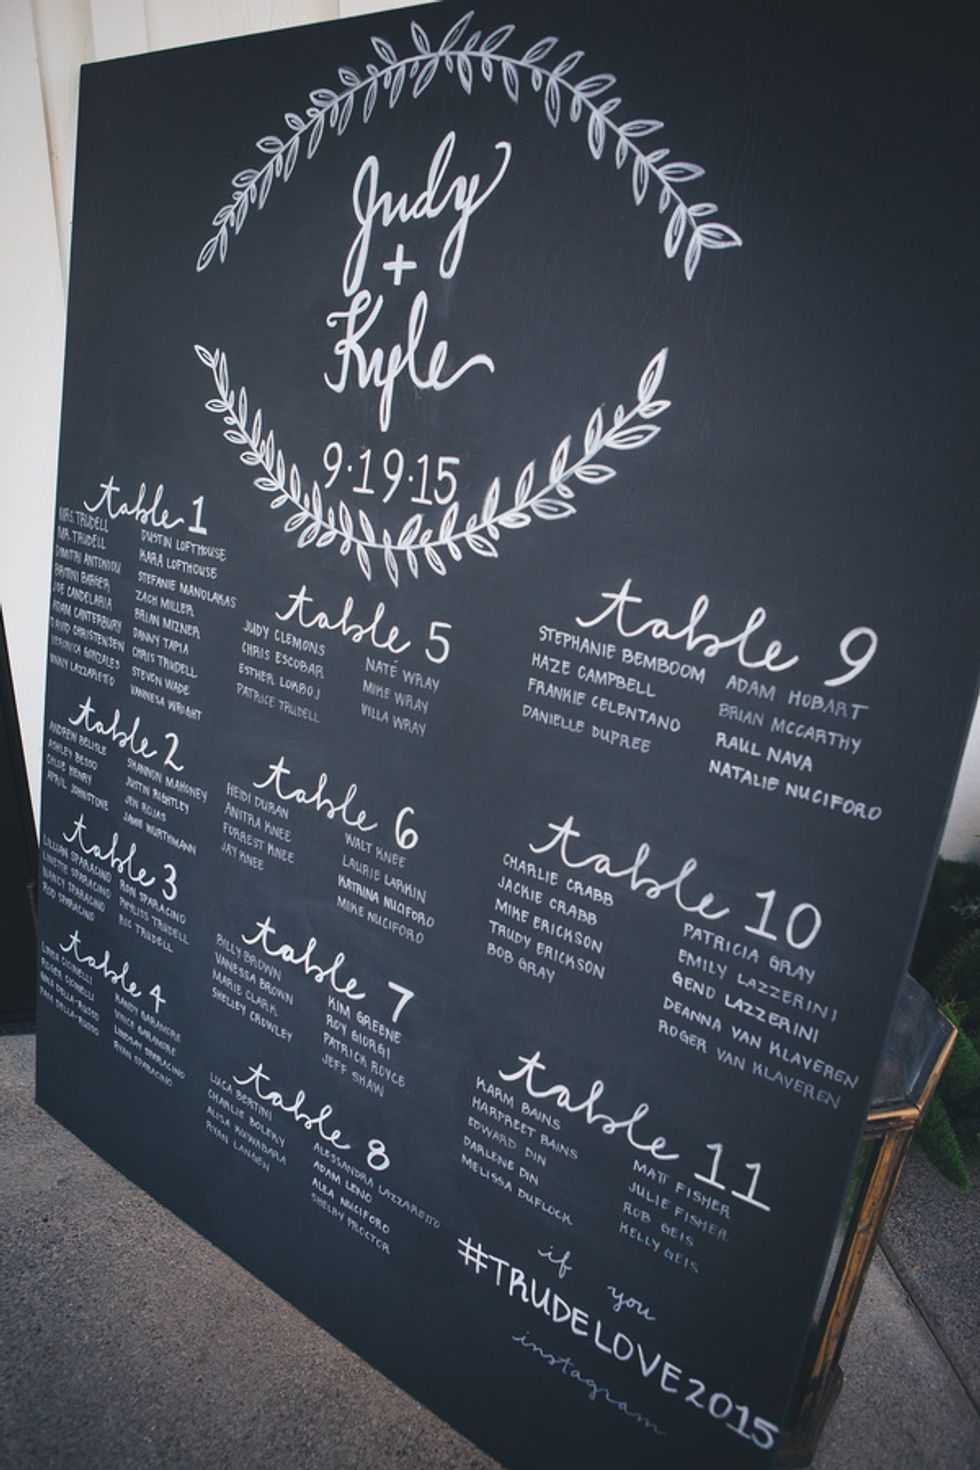 Judy
+
Kyle
9·19·15
table 1
MRS. TRUDELL
MR. TRUDELL
DIMITRI ANTONIOU
BRITTNI BARBER
JOE CANDELARIA
ADAM CANTERBURY
DAVID CHRISTENSEN
VERONICA GONZALES
VINNY LAZZARETTO
DUSTIN LOFTHOUSE
KARA LOFTHOUSE
STEFANIE MANOLAKAS
ZACH MILLER
BRIAN MIZNER
DANNY TAPIA
CHRIS TRUDELL
STEVEN WADE
VANNESA WRIGHT
table 2
ANDREW BELISLE
ASHLEY BESSO
CHLOE HENRY
APRIL JOHNSTONE
SHANNON MAHONEY
JUSTIN RIGHTLEY
JEN ROJAS
JAMIE WORTHMANN
table 3
LILLIAN SPARACINO
LINETTE SPARACINO
NANCY SPARACINO
ROD SPARACINO
RON SPARACINO
PHYLISS TRUDELL
RIC TRUDELL
table 4
LINDA CICINELLI
ROGER CICINELLI
GINA DELLA-RUSSO
DELLA-RUSSO
RANDY GARAMORE
VINCE GARAMORE
LINDSAY SPARACINO
RYAN SPARACINO
table 5
JUDY CLEMONS
CHRIS ESCOBAR
ESTHER LOKBOJ
PATRICE TRUDELL
NATE WRAY
MIKE WRAY
VILLA WRAY
table 6
HEIDI DURAN
ANITRA KNEE
FORREST KNEE
JAY KNEE
WALT KNEE
LAURIE LARKIN
KATRINA NUCIFORO
MIKE NUCIFORO
table 7
BILLY BROWN
VANESSA BROWN
MARIE CLARK
SHELLEY CROWLEY
KIM GREENE
ROY GIORGI
PATRICK ROYCE
JEFF SHAW
table 8
LUCA BERTINI
CHARLIE BOLEKY
ALISA KUWABARA
RYAN LANGEN
ALESSANDRA LAZZARETTO
ADAM LENO
ALEA NUCIFORO
SHELBY PROCTOR
table 9
STEPHANIE BEMBOOM
HAZE CAMPBELL
FRANKIE CELENTANO
DANIELLE DUPREE
ADAM HOBART
BRIAN MCCARTHY
RAUL NAVA
NATALIE NUCIFORO
table 10
CHARLIE CRABB
JACKIE CRABB
MIKE ERICKSON
TRUDY ERICKSON
BOB GRAY
PATRICIA GRAY
EMILY LAZZERINI
GENO LAZZERINI
DEANNA VAN KLAVEREN
ROGER VAN KLAVEREN
table 11
KARM BAINS
HARPREET BAINS
EDWARD DIN
DARLENE DIN
MELISSA DUFLOCK
MATT FISHER
JULIE FISHER
ROB GEIS
KELLY GEIS
if you
#TRUDELOVE2015
instagram